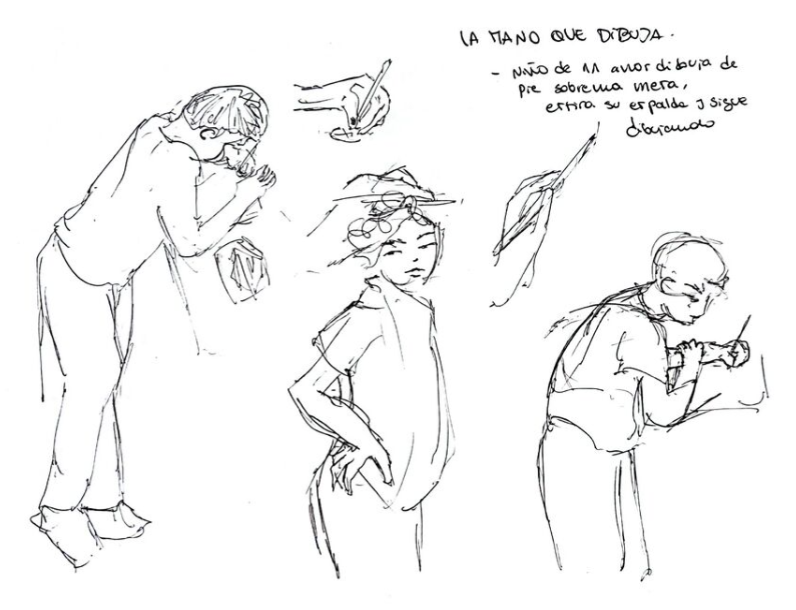 LA MANO QUE DIBUJA.
- NIÑO DE 11 años dibuja de
pie sobre una mesa,
estira su espalda y sigue
dibujando